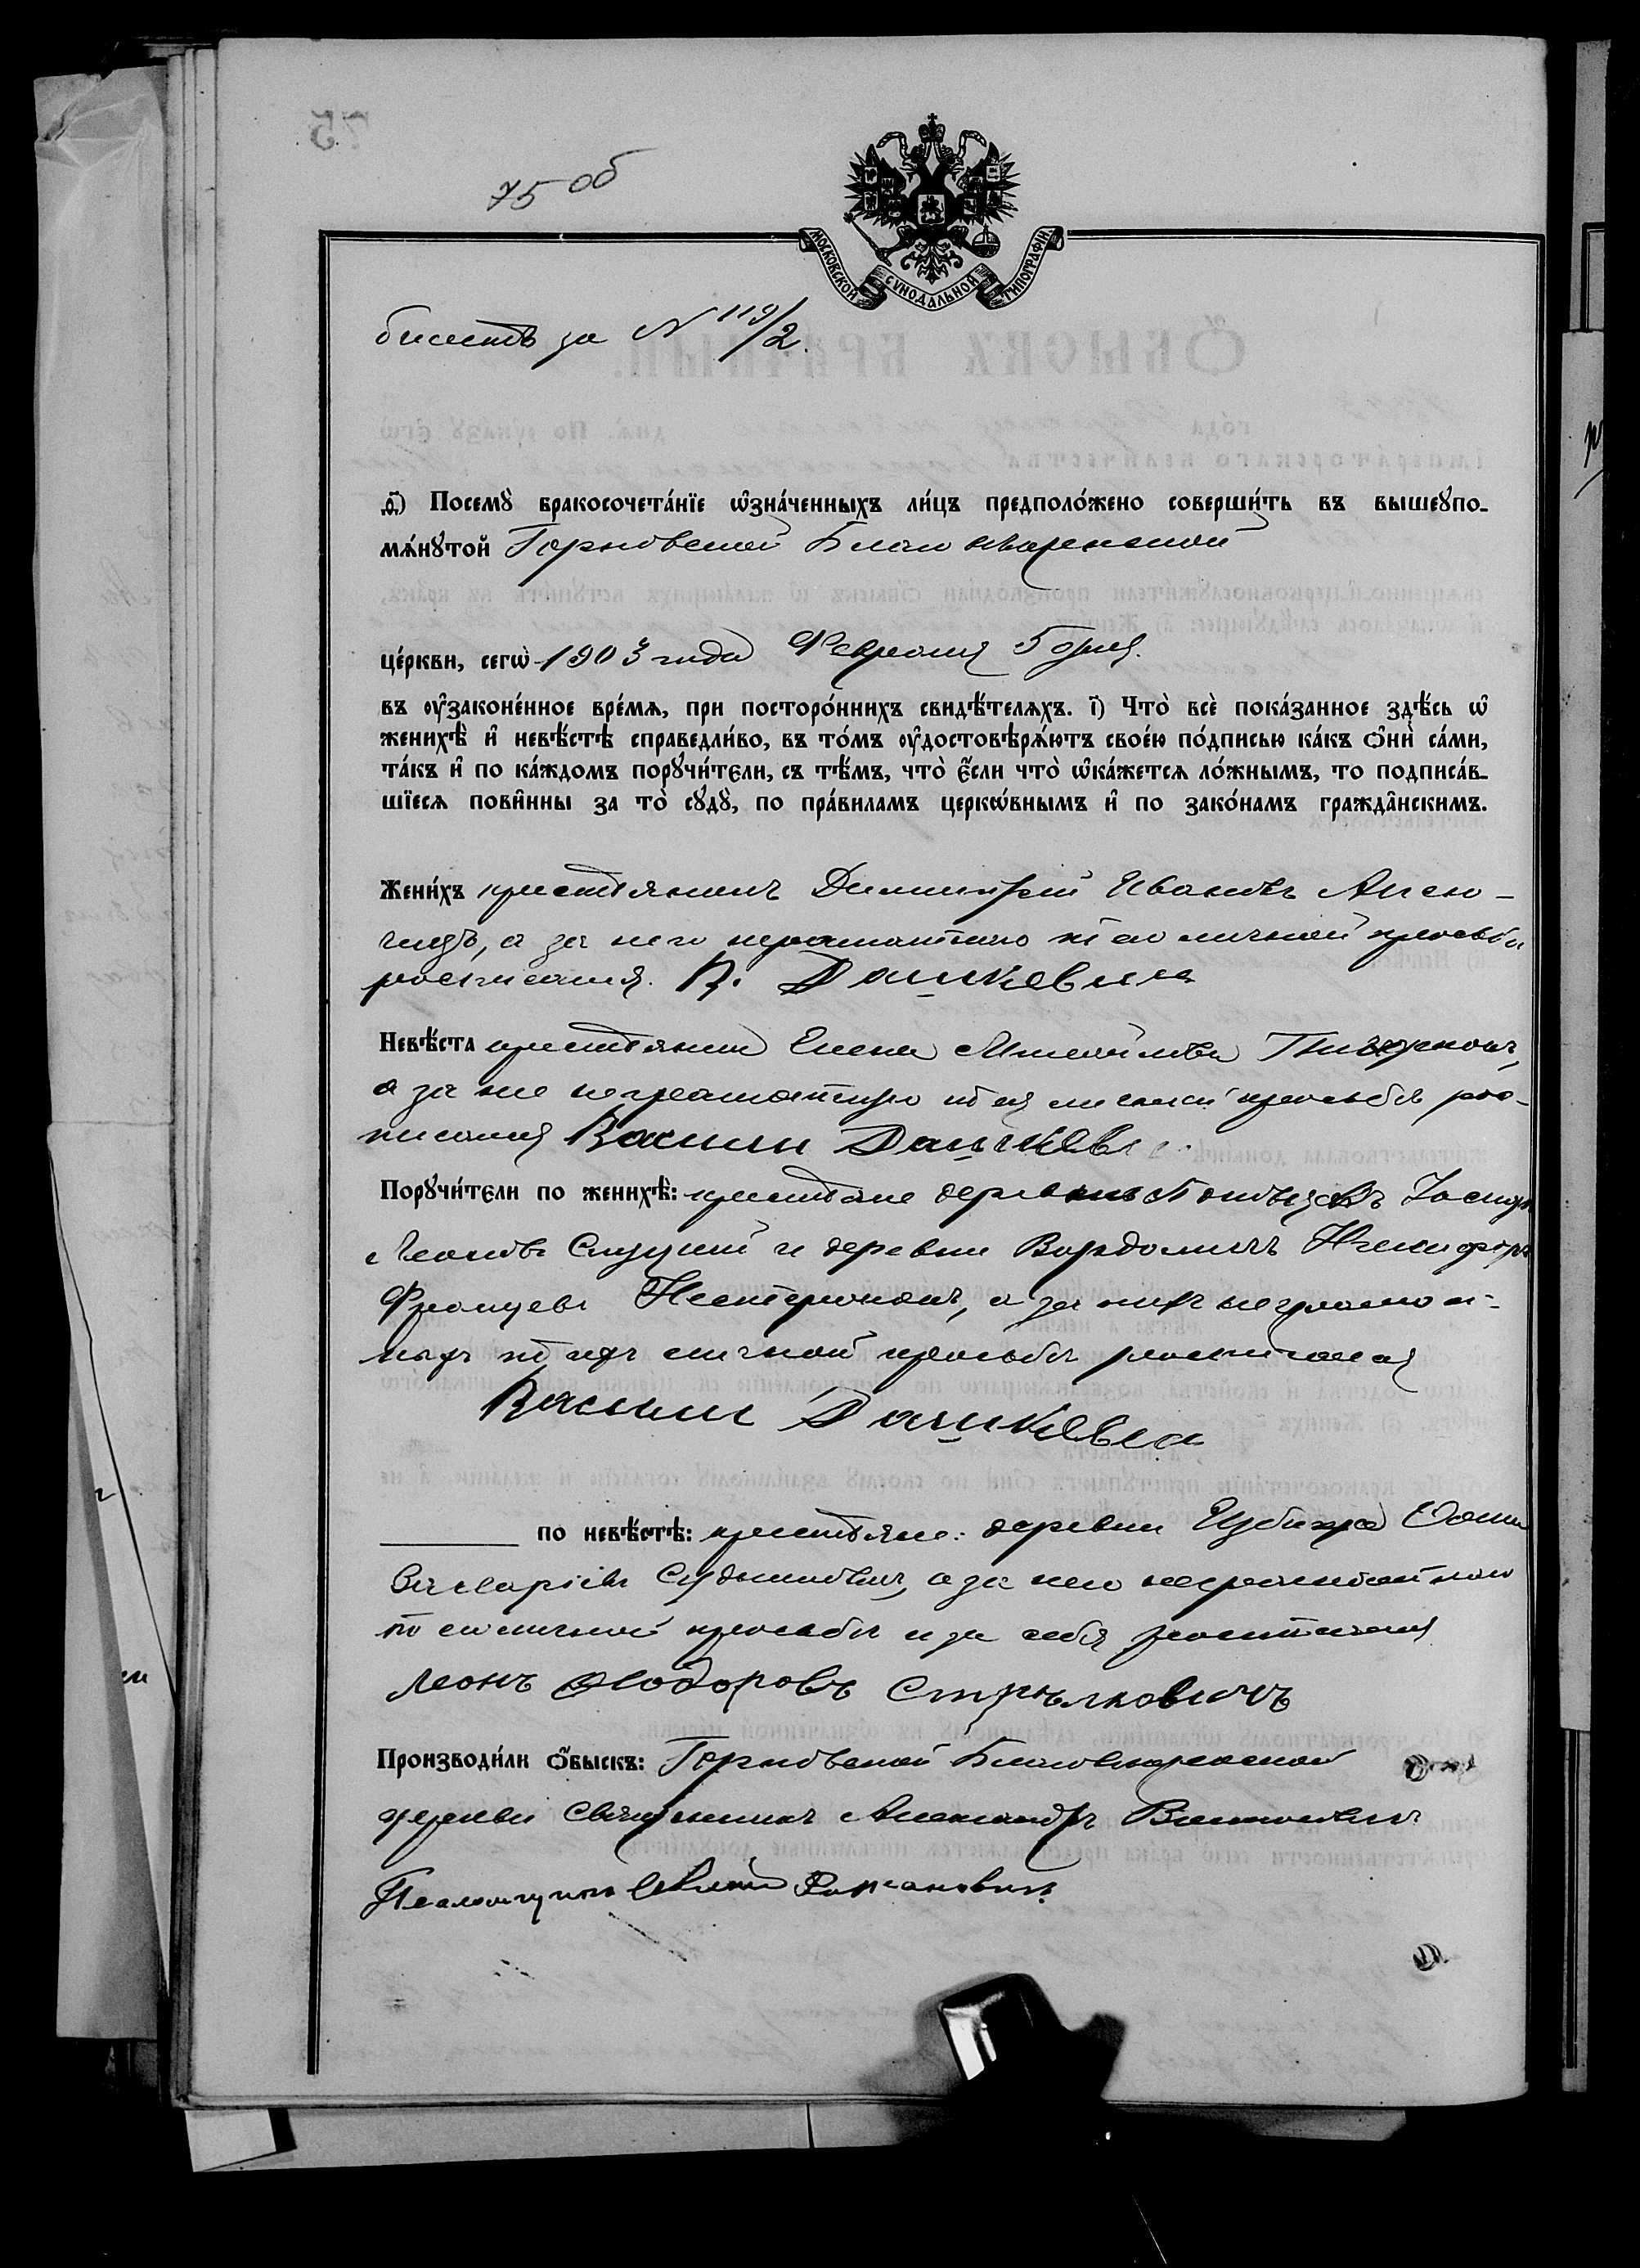 75 об
МОСКОВСКОЙ СѴНОДАЛЬНОЙ ТИПОГРАФІИ
билетъ за N 119/2.
ѳ҃) Посемꙋ̀ бракосочета́нїе ѡ҆зна́ченныхъ ли́цъ предполо́жено соверши́ть въ вышеꙋпо-
мѧ́нꙋтой Горновской Благовѣщенской
це́ркви, сегѡ̀ 1903 года Февраля 5 дня.
въ ᲂу҆законе́нное вре́мѧ, при посторо́ннихъ свидѣ́телѧхъ. і҃) Что̀ всѐ пока́занное здѣ́сь ѡ҆
женихѣ̀ и҆ невѣ́стѣ справедли́во, въ то́мъ ᲂу҆достовѣрѧ́ютъ свое́ю по́дписью ка́къ ѻ҆нѝ са́ми,
та́къ и҆ по ка́ждомъ порꙋчи́тели, съ тѣ́мъ, что̀ є҆́сли что̀ ѡ҆ка́жетсѧ ло́жнымъ, то подписа́в-
шїесѧ пови́нны за то̀ сꙋдꙋ̀, по пра́виламъ церко́внымъ и҆ по зако́намъ гражда́нскимъ.
Жени́хъ крестьянинъ Димитрій Ивановъ
а за него неграмотнаго по его личной просьбѣ
росписался. В. Дашкевичъ
Невѣ́ста крестьянка Елена Михайлова
а за нее неграмотную по ея личной просьбѣ рос-
писался Василій Дашкевичъ
Порꙋчи́тели по женихѣ̀: крестьяне деревень Іосифъ
Леоновъ Слуцкій и деревни Вардомичъ Никифоръ
Францевъ Нестеровичъ, а за нихъ неграмот-
ныхъ по ихъ личной просьбѣ росписался
Василій Дашкевичъ
по невѣ́стѣ: крестьяне: деревни
а за него неграмотнаго
по его личной просьбѣ и за себя росписался
Леонъ Ѳеодоровъ Стрѣлковичъ
Производи́ли ѻ҆́быскъ: Горновской Благовѣщенской
церкви Священникъ Александръ
Псаломщикъ